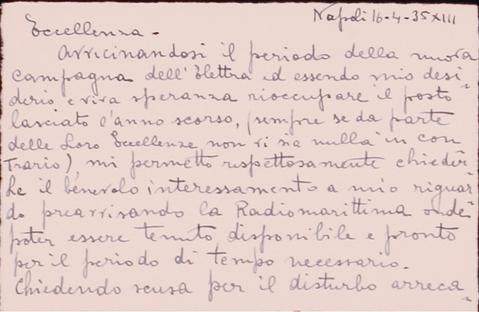 Napoli 16-4-35 XIII
Eccellenza -
Avvicinandosi il periodo della nuova
campagna dell'Elettra ed essendo mio desi-
derio, e viva speranza rioccupare il posto
lasciato l'anno scorso, (sempre se da parte
delle Loro Eccellenze non vi sia nulla in con
trario) mi permetto rispettosamente chieder-
Le il benevolo interessamento a mio riguar-
do preavvisando la Radiomarittima onde
poter essere tenuto disponibile e pronto
per il periodo di tempo necessario.
Chiedendo scusa per il disturbo arreca-